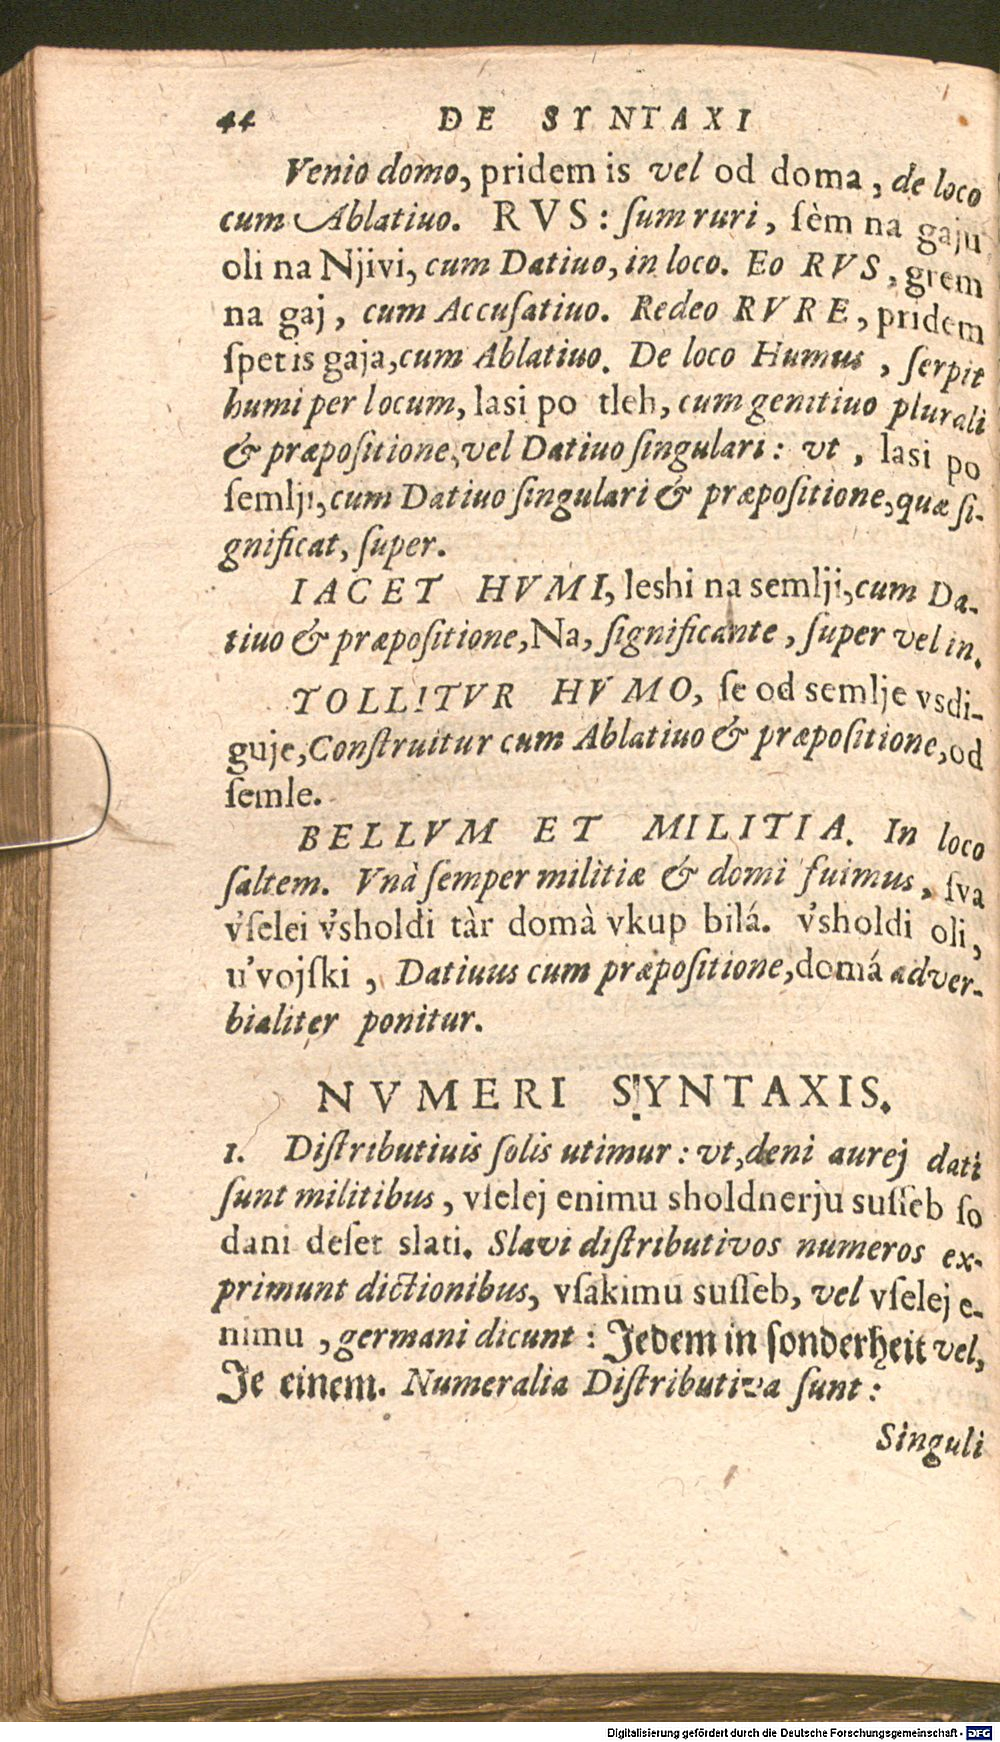 44 DE SYNTAXI
Venio domo, pridem is vel od doma, de loco
cum Ablatiuo. RVS: ſum ruri, ſèm na gaju
oli na Njivi, cum Datiuo, in loco. Eo RVS, grem
na gaj, cum Accuſatiuo. Redeo RVRE, pridem
ſpet is gaja, cum Ablatiuo. De loco Humus, ſerpit
humi per locum, lasi po tleh, cum genitiuo plurali
& præpoſitione, vel Datiuo ſingulari: vt, lasi po
ſemlji, cum Datiuo ſingulari & præpoſitione, quæ ſi-
gnificat, ſuper.
IACET HVMI, leshi na semlji, cum Da-
tiuo & præpoſitione, Na, ſignificante, ſuper vel in.
TOLLITVR HVMO, ſe od semlje vsdi-
guje, Conſtruitur cum Ablatiuo & præpoſitione, od
ſemle.
BELLVM ET MILITIA. In loco
ſaltem. Vnà ſemper militiæ & domi fuimus, ſva
v̓ſelei v̓sholdi tàr domà vkup bilá. v̓sholdi oli,
u'vojſki, Datiuus cum præpoſitione, domá adver-
bialiter ponitur.
NVMERI SYNTAXIS.
1. Diſtributiuis ſolis utimur: vt, deni aurej dati
ſunt militibus, vſelej enimu sholdnerju suſſeb ſo
dani deſet slati. Slavi diſtributivos numeros ex-
primunt dictionibus, vſakimu suſſeb, vel vſelej e-
nimu, germani dicunt: Jedem in ſonderheit vel,
Je einem. Numeralia Diſtributiva ſunt:
Singuli
Digitalisierung gefördert durch die Deutsche Forschungsgemeinschaft - DFG